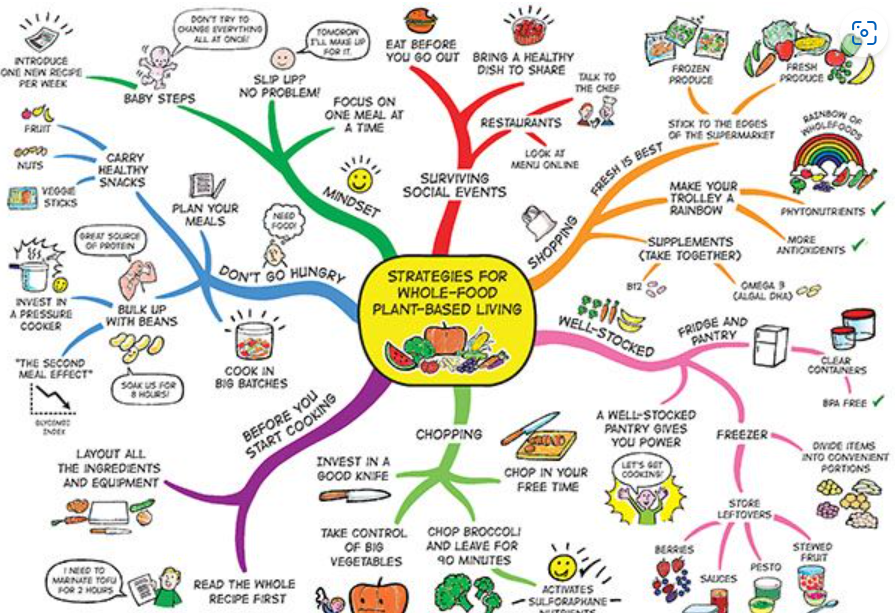 STRATEGIES FOR
WHOLE-FOOD
PLANT-BASED LIVING
MINDSET
BABY STEPS
INTRODUCE
ONE NEW RECIPE
PER WEEK
DON'T TRY TO
CHANGE EVERYTHING
ALL AT ONCE!
SLIP UP?
NO PROBLEM!
TOMOROW
I'LL MAKE UP
FOR IT.
FOCUS ON
ONE MEAL AT
A TIME
SURVIVING
SOCIAL EVENTS
EAT BEFORE
YOU GO OUT
BRING A HEALTHY
DISH TO SHARE
RESTAURANTS
TALK TO
THE CHEF
LOOK AT
MENU ONLINE
SHOPPING
FRESH IS BEST
STICK TO THE EDGES
OF THE SUPERMARKET
FROZEN
PRODUCE
FRESH
PRODUCE
MAKE YOUR
TROLLEY A
RAINBOW
RAINBOW OF
WHOLEFOODS
PHYTONUTRIENTS
MORE
ANTIOXIDENTS
SUPPLEMENTS
(TAKE TOGETHER)
B12
OMEGA 3
(ALGAL DHA)
WELL-STOCKED
FRIDGE AND
PANTRY
CLEAR
CONTAINERS
BPA FREE
A WELL-STOCKED
PANTRY GIVES
YOU POWER
LET'S GET
COOKING!
FREEZER
DIVIDE ITEMS
INTO CONVENIENT
PORTIONS
STORE
LEFTOVERS
BERRIES
SAUCES
PESTO
STEWED
FRUIT
CHOPPING
INVEST IN A
GOOD KNIFE
CHOP IN YOUR
FREE TIME
TAKE CONTROL
OF BIG
VEGETABLES
CHOP BROCCOLI
AND LEAVE FOR
90 MINUTES
ACTIVATES
SULFORAPHANE
NUTRIENTS
BEFORE YOU
START COOKING
LAYOUT ALL
THE INGREDIENTS
AND EQUIPMENT
READ THE WHOLE
RECIPE FIRST
I NEED TO
MARINATE TOFU
FOR 2 HOURS
DON'T GO HUNGRY
NEED
FOOD!
PLAN YOUR
MEALS
CARRY
HEALTHY
SNACKS
FRUIT
NUTS
VEGGIE
STICKS
BULK UP
WITH BEANS
GREAT SOURCE
OF PROTEIN
INVEST IN
A PRESSURE
COOKER
"THE SECOND
MEAL EFFECT"
GLYCEMIC
INDEX
SOAK US FOR
8 HOURS!
COOK IN
BIG BATCHES